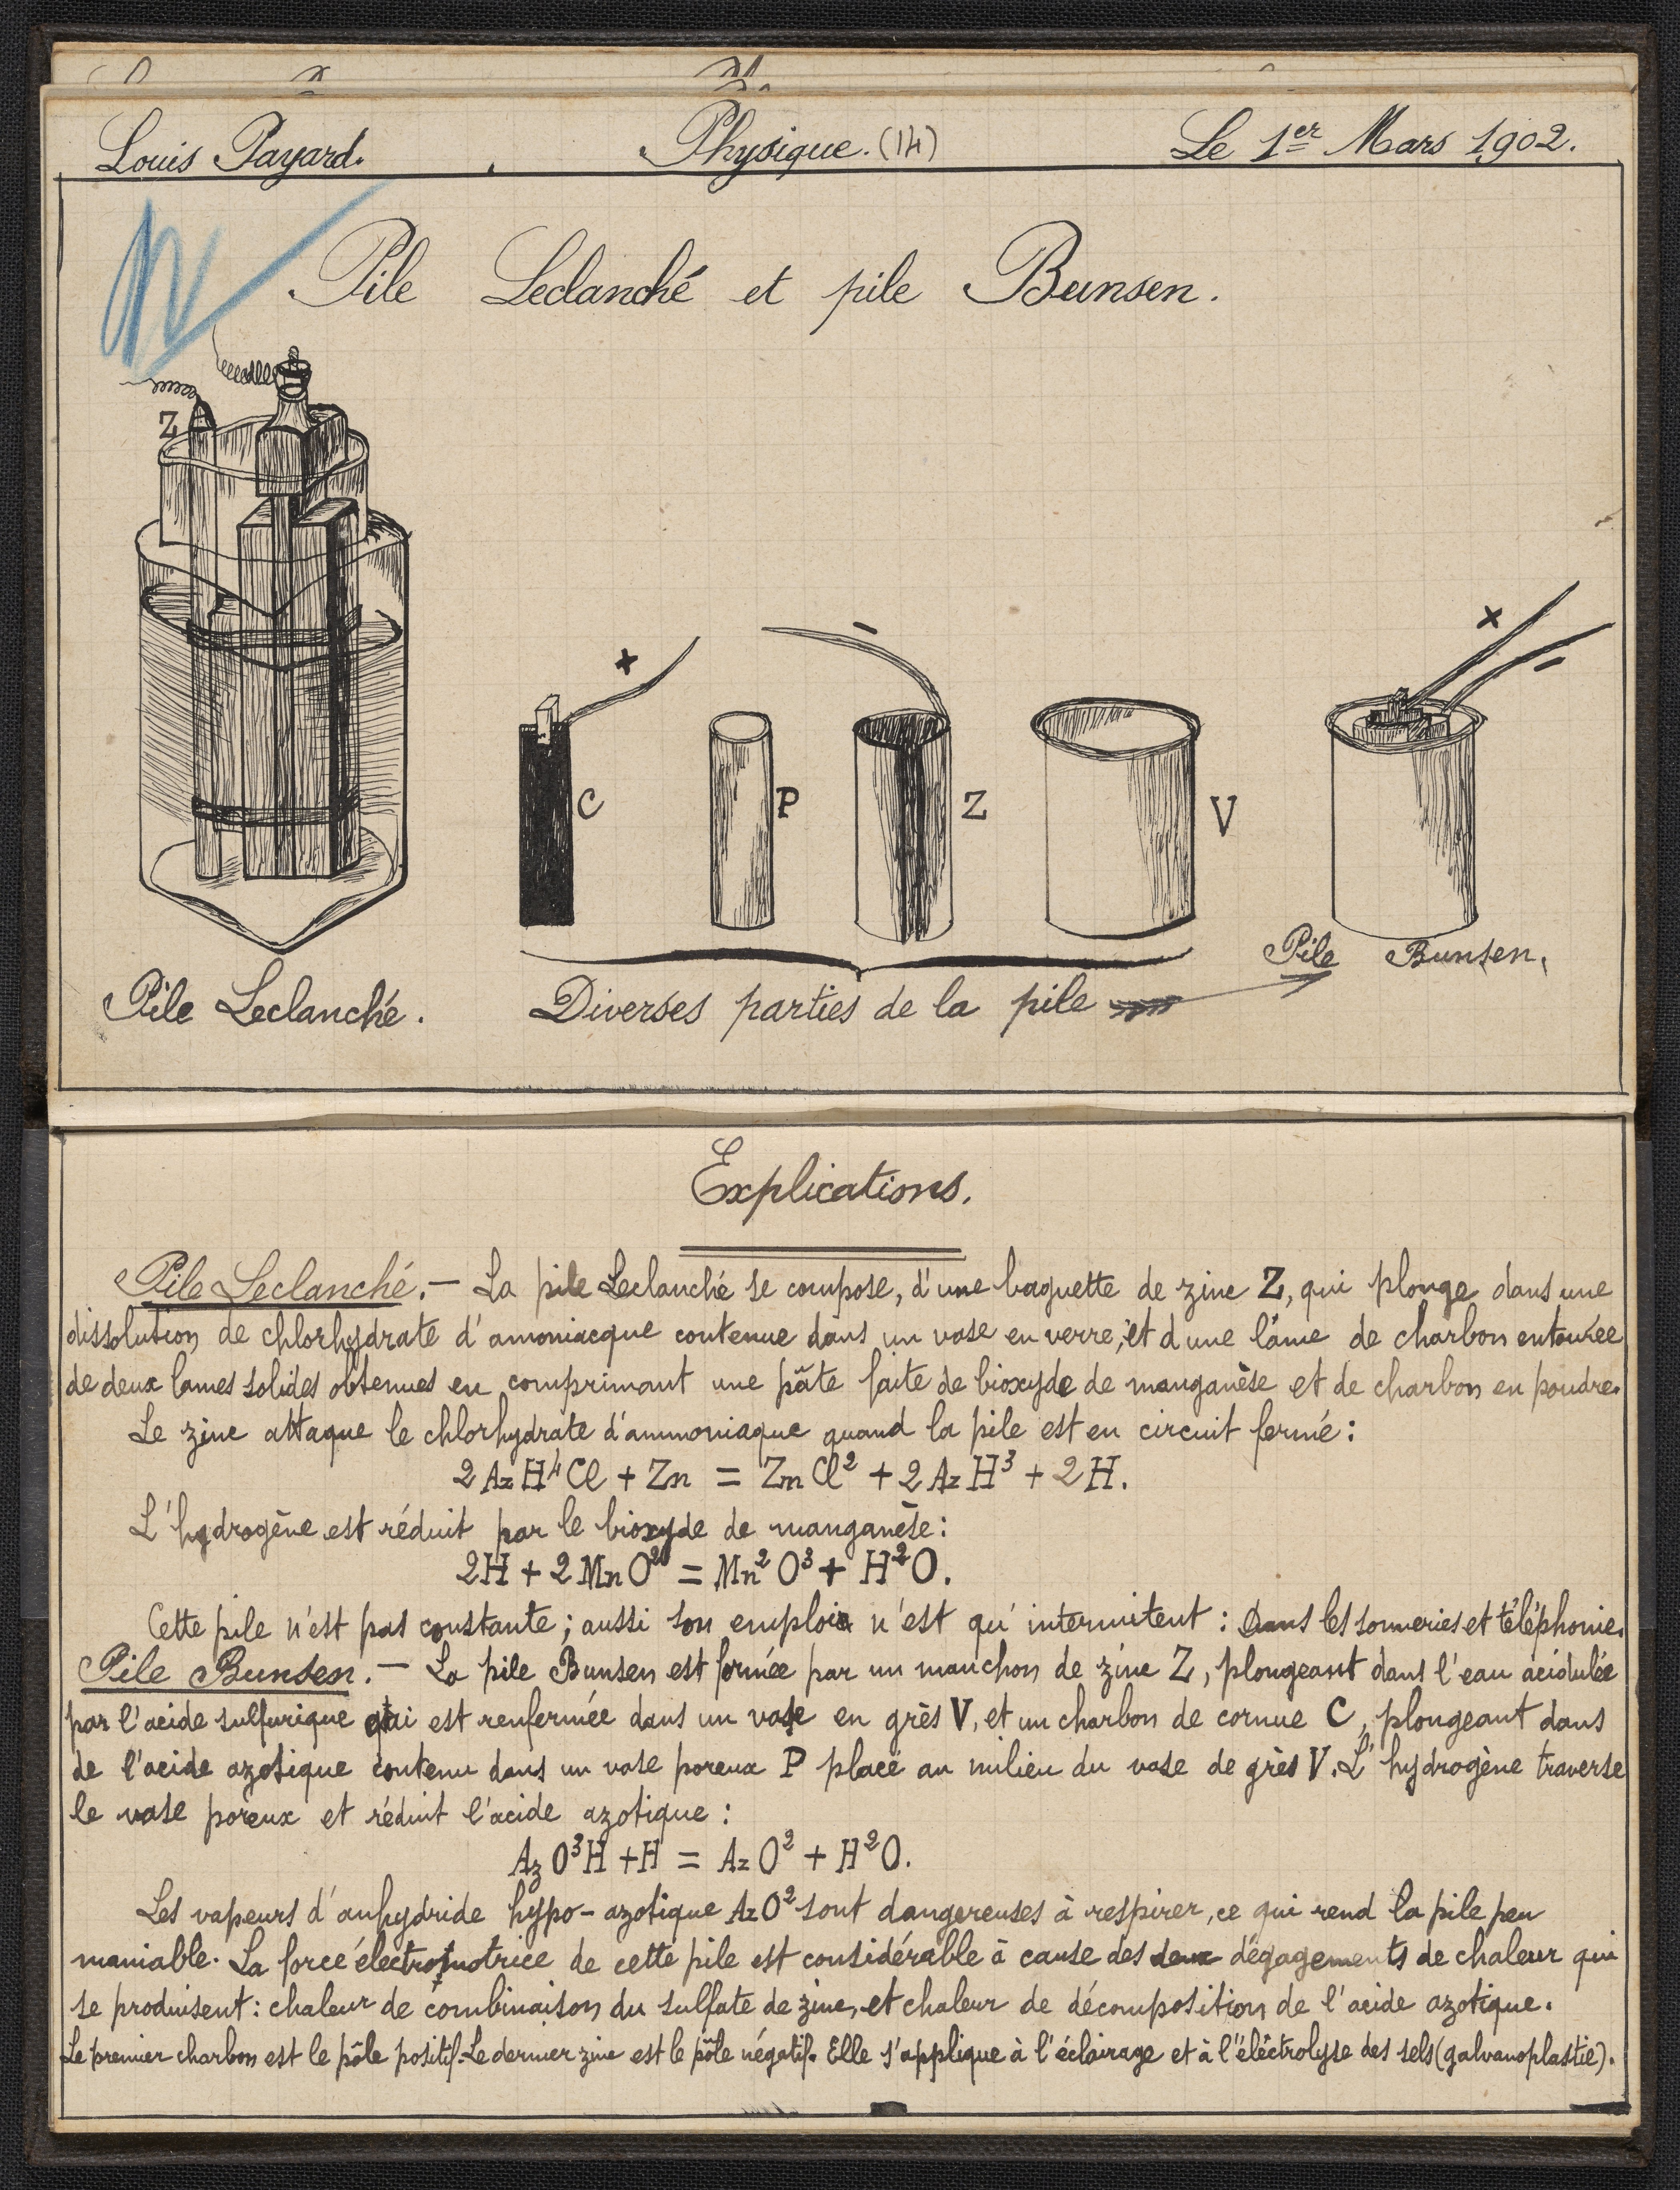 Louis Payard. Physique. (14) Le 1er Mars 1902.
Pile Leclanché et pile Bunsen.
Z
+ − + −
C P Z V
Pile Leclanché.
Diverses parties de la pile
Pile Bunsen.
Explications.
Pile Leclanché. — La pile Leclanché se compose, d'une baguette de zinc Z, qui plonge dans une
dissolution de chlorhydrate d'amoniacque contenue dans un vase en verre, et d'une lâme de charbon entourée
de deux lames solides obtenues en comprimant une pâte faite de bioxyde de manganèse et de charbon en poudre.
Le zinc attaque le chlorhydrate d'ammoniaque quand la pile est en circuit fermé :
2 Az H⁴ Cl + Zn = Zn Cl² + 2 Az H³ + 2 H.
L'hydrogène est réduit par le bioxyde de manganèse :
2H + 2 Mn O² = Mn² O³ + H² O.
Cette pile n'est pas constante ; aussi son emploi n'est qu'intermitent : Dans les sonneries et téléphonie.
Pile Bunsen. — La pile Bunsen est formée par un manchon de zinc Z, plongeant dans l'eau acidulée
par l'acide sulfurique qui est renfermée dans un vase en grès V, et un charbon de cornue C, plongeant dans
de l'acide azotique contenu dans un vase poreux P placé au milieu du vase de grès V. L'hydrogène traverse
le vase poreux et réduit l'acide azotique :
Az O³ H + H = Az O² + H² O.
Les vapeurs d'anhydride hypo-azotique Az O² sont dangereuses à respirer, ce qui rend la pile peu
maniable. La force électromotrice de cette pile est considérable à cause des deux dégagements de chaleur qui
se produisent : chaleur de combinaison du sulfate de zinc, et chaleur de décomposition de l'acide azotique.
Le premier charbon est le pôle positif. Le dernier zinc est le pôle négatif. Elle s'applique à l'éclairage et à l'élêctrolyse des sels (galvanoplastie).